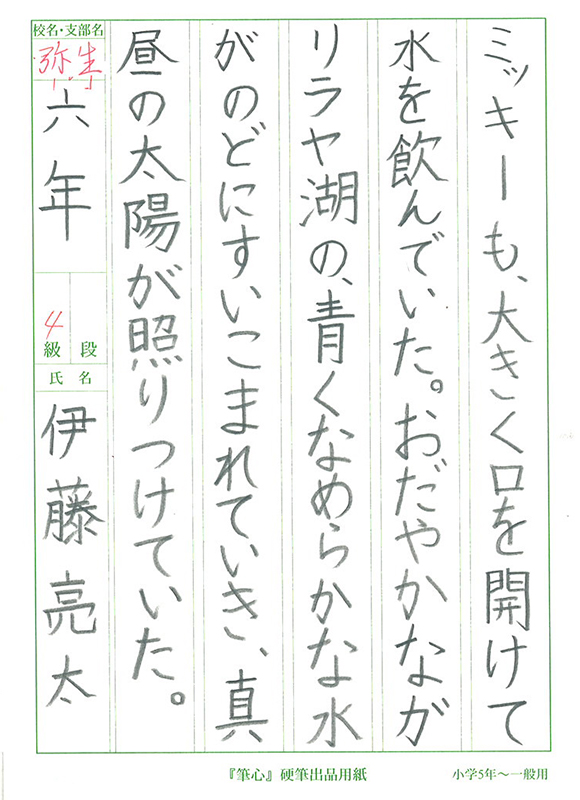 ミッキーも、大きく口を開けて
水を飲んでいた。おだやかなが
リラヤ湖の、青くなめらかな水
がのどにすいこまれていき、真
昼の太陽が照りつけていた。
校名・支部名
弥生
六年
4
級 段
氏名
伊藤亮太
『筆心』硬筆出品用紙
小学5年～一般用